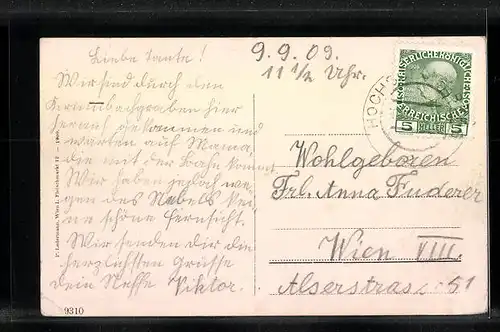 Liebe Tante!
Wir sind durch den
Krummbachgraben hier
herauf gekommen und
warten auf Mama,
die mit der Bahn kommt.
Wir haben jedoch we-
gen des Nebels kei-
ne schöne Fernsicht.
Wir senden dir die
herzlichsten Grüsse
dein Neffe Viktor.
9.9.09.
11 1/2 Uhr.
HOCHS
5 HELLER 5
Wohlgeboren
Frl. Anna Fuderer
Wien VIII.
Alserstrasse 51
P. Ledermann, Wien I., Fleischmarkt 12
9310